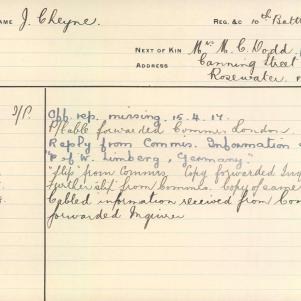 NAME J. Cheyne. REG. &C 10th Batt
NEXT OF KIN Mrs M. C. Dodd
ADDRESS Canning Street
Rosewater
Off rep. missing. 15.4.17.
P/Cable forwarded Commrs. London.
Reply from Commrs. Information
"P of W. Limberg, Germany."
"Slip" from Commrs, Copy forwarded Inq
Further slip from Commrs. Copy of same
Cabled information received from Com
forwarded Inquirer